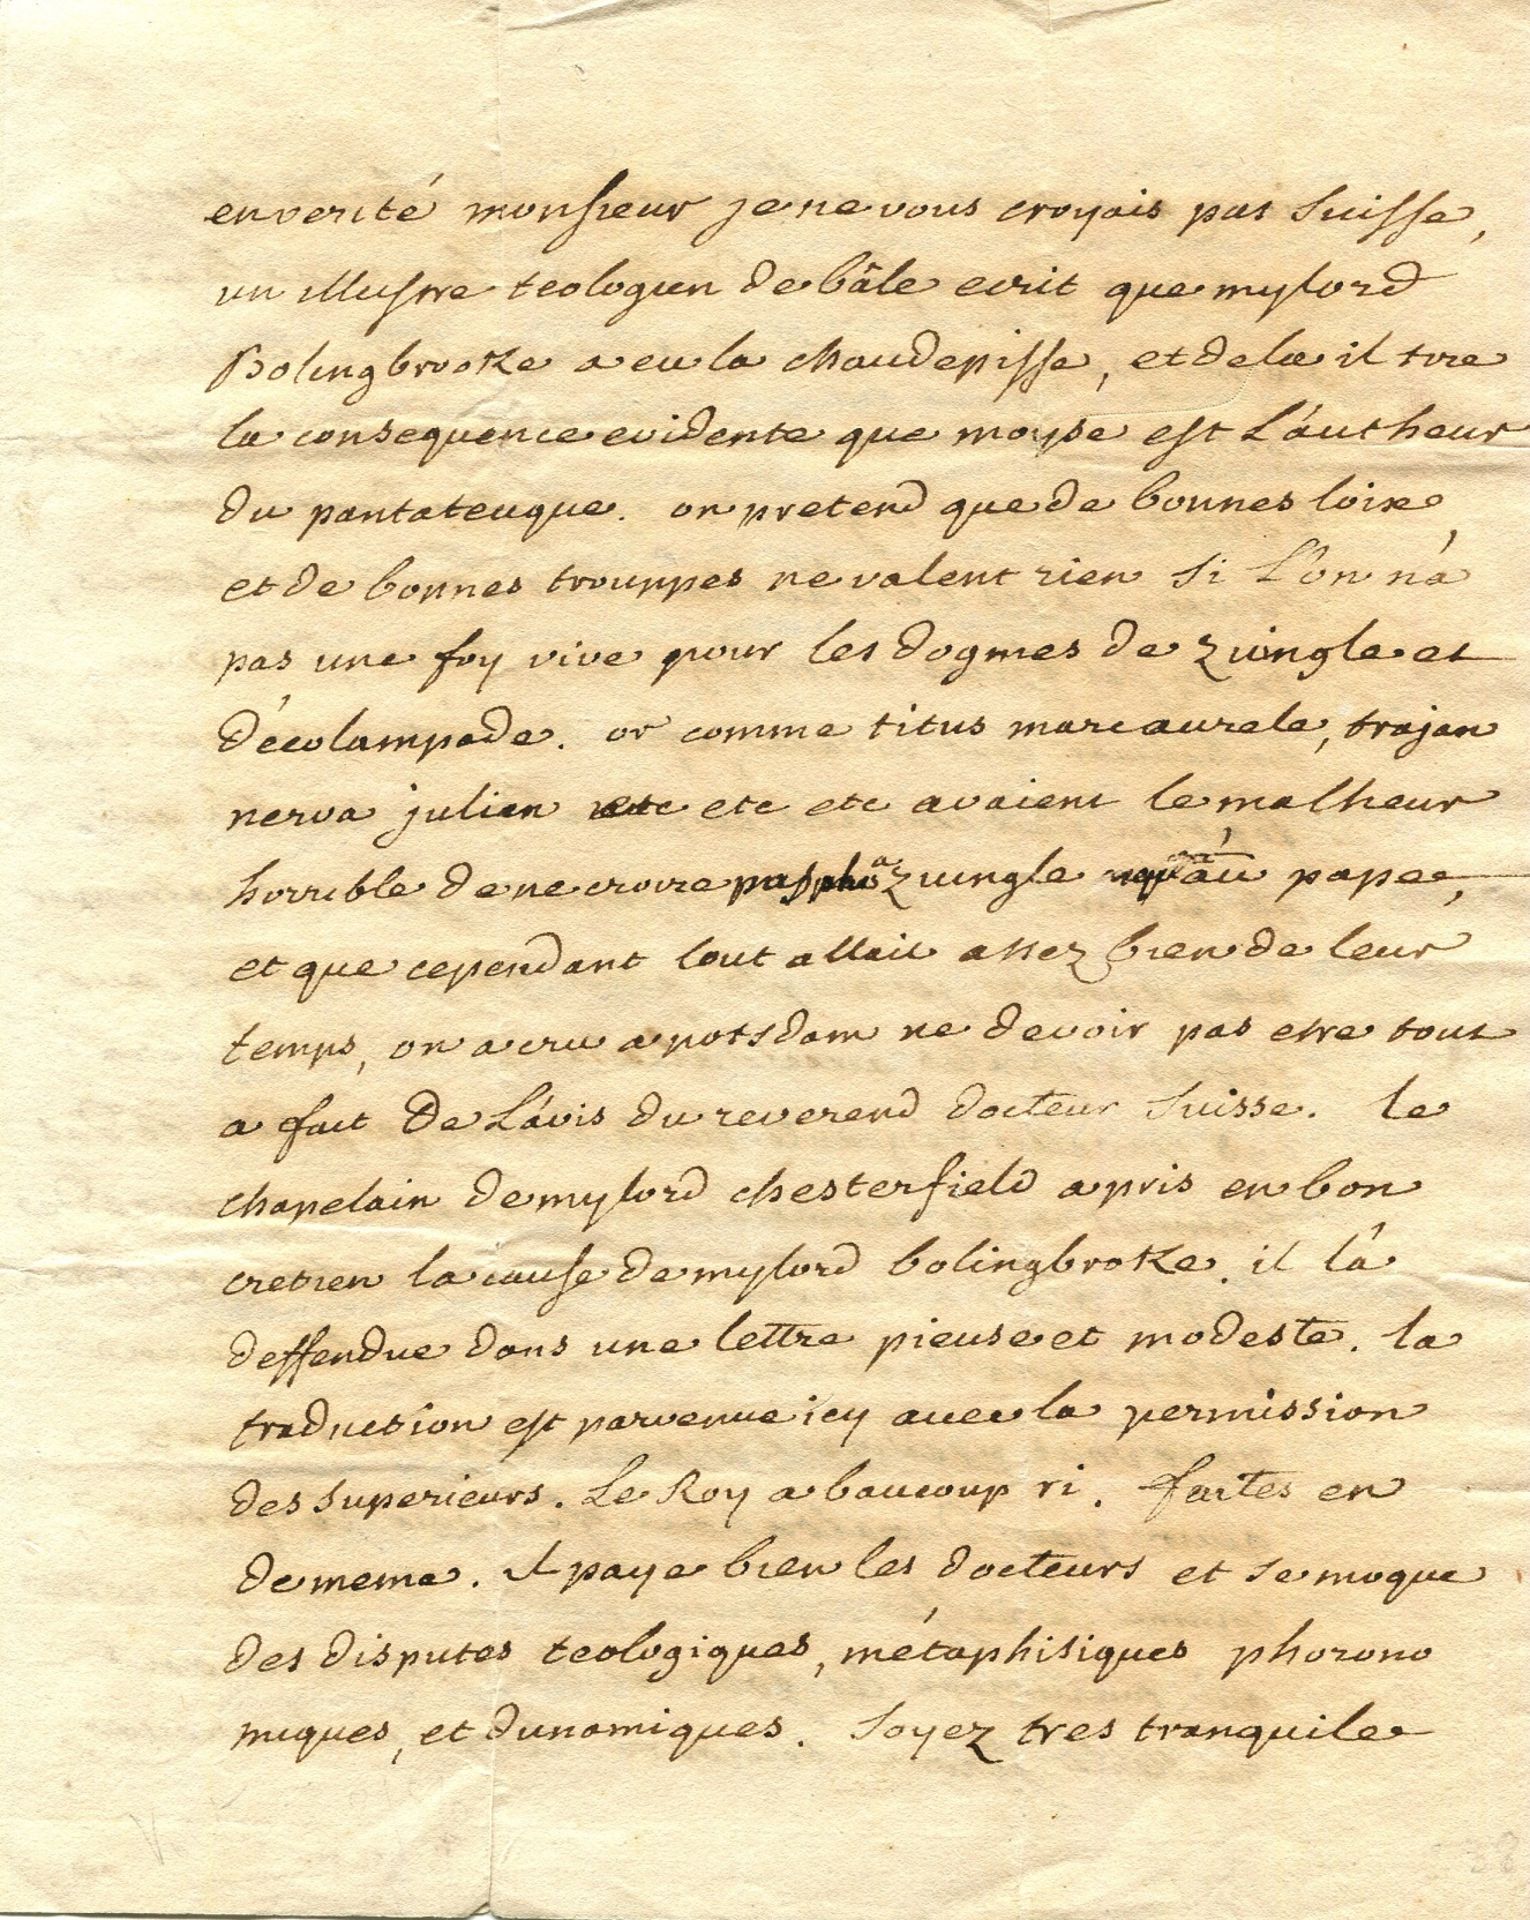 en verité monsieur je ne vous croyais pas suisse,
un illustre teologien de bâle ecrit que mylord
Bolingbroke a eu la chaudepisse, et de la il tire
la consequence evidente que moyse est L'autheur
du pantateuque. on pretend que de bonnes loix,
et de bonnes trouppes ne valent rien si L'on n'a
pas une foy vive pour les dogmes de zuingle et
d'ecolampade. or comme titus marc aurele, trajan
nerva julien etc etc avaient le malheur
horrible de ne croire pas plus a zuingle qu'au pape,
et que cependant tout allait assez bien de leur
temps, on a cru a potsdam ne devoir pas etre tout
a fait de L'avis du reverend docteur suisse. le
chapelain de mylord chesterfield a pris en bon
cretien la cause de mylord bolingbroke. il l'a
deffendue dans une lettre pieuse et modeste. la
traduction est parvenue icy avec la permission
des superieurs. Le Roy a baucoup ri. faites en
de meme. Il paye bien les docteurs et se moque
des disputes teologiques, métaphisiques phorono
miques, et dunamiques. soyez tres tranquile